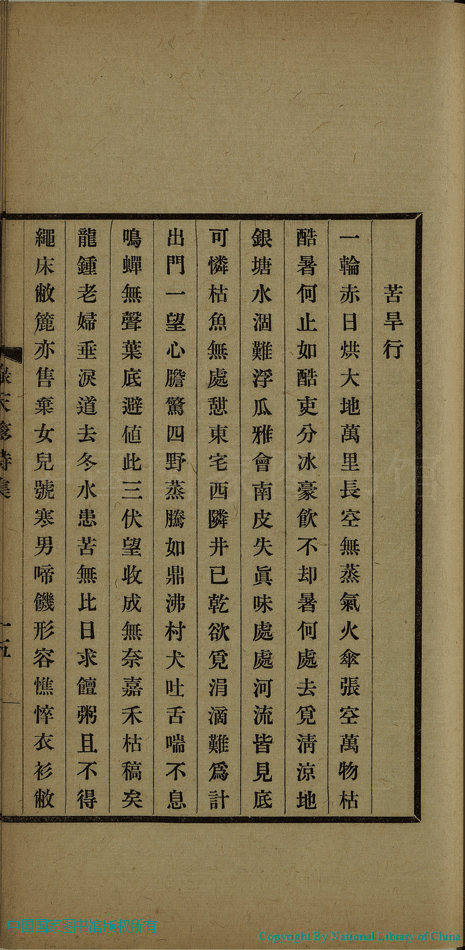 苦旱行
一輪赤日烘大地萬里長空無蒸氣火傘張空萬物枯
酷暑何止如酷吏分冰豪飲不却暑何處去覓淸涼地
銀塘水涸難浮瓜雅會南皮失眞味處處河流皆見底
可憐枯魚無處憇東宅西隣井已乾欲覓涓滴難爲計
出門一望心膽驚四野蒸騰如鼎沸村犬吐舌喘不息
鳴蟬無聲葉底避値此三伏望收成無奈嘉禾枯稿矣
龍鍾老婦垂淚道去冬水患苦無比日求饘粥且不得
繩床敝簏亦售棄女兒號寒男啼饑形容憔悴衣衫敝
詩集
十五
Copyright By National Library of China